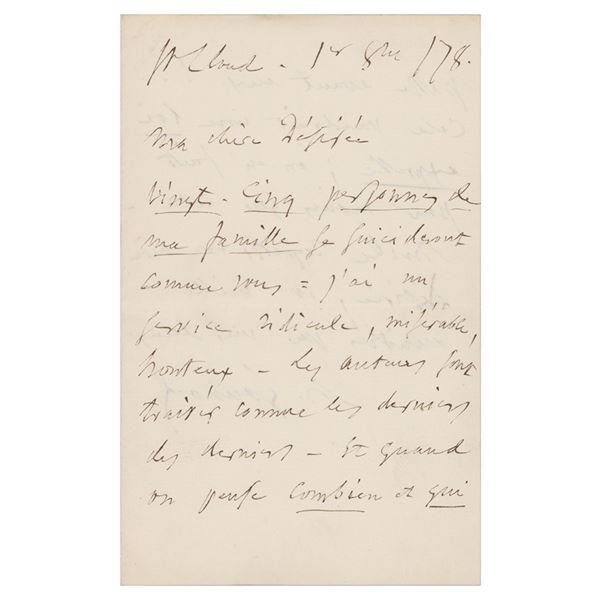 St Cloud - 1er 8bre /78.
Ma chère Désirée
Vingt-Cinq personnes de
ma famille se suicideront
comme vous = j'ai un
service ridicule, misérable,
honteux - Les auteurs sont
traités comme les derniers
des derniers - Et quand
on pense combien et qui